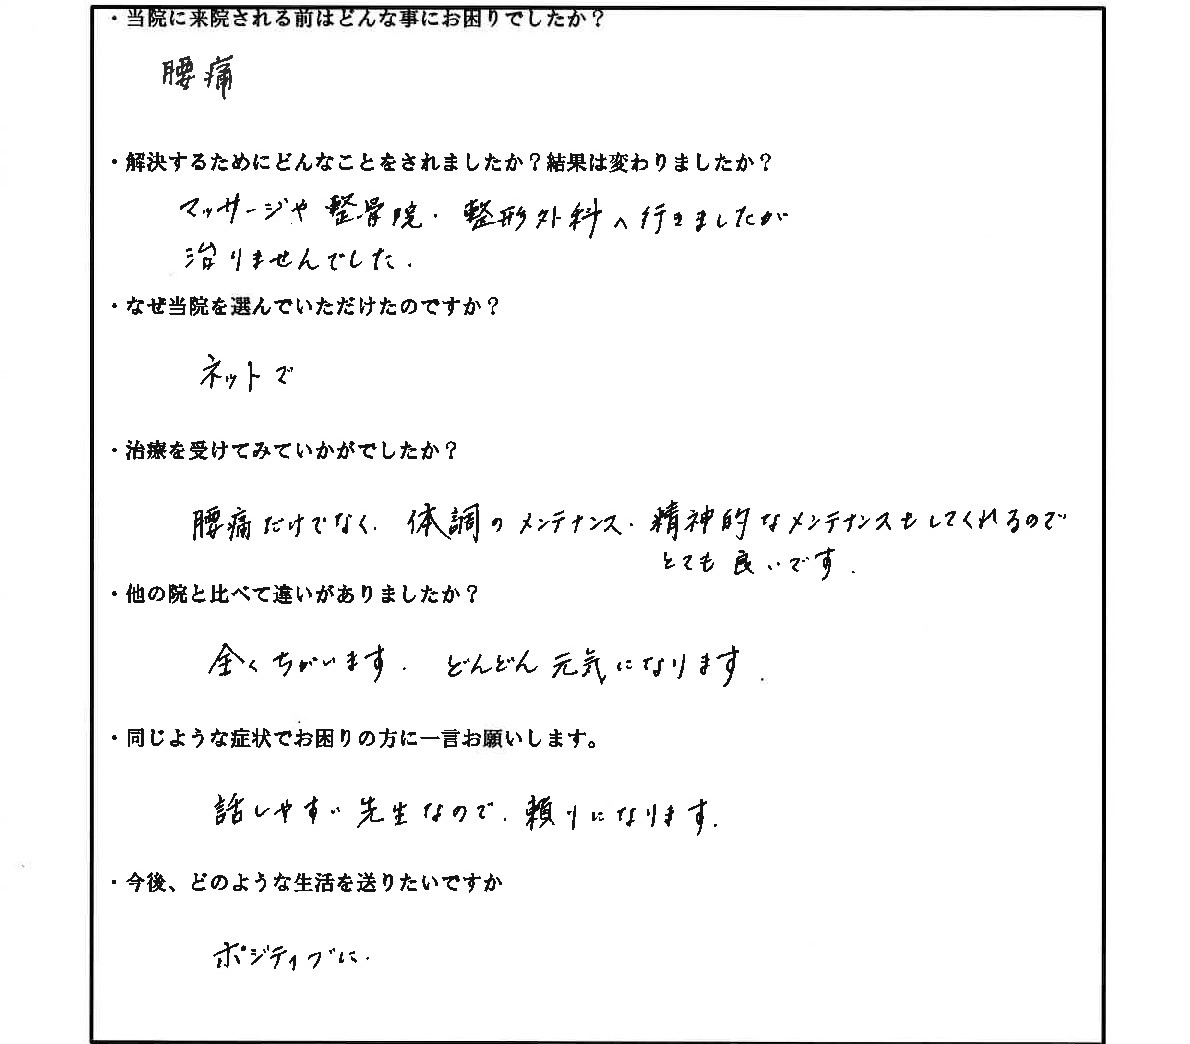 ・当院に来院される前はどんな事にお困りでしたか？
腰痛
・解決するためにどんなことをされましたか？結果は変わりましたか？
マッサージや整骨院・整形外科へ行きましたが
治りませんでした.
・なぜ当院を選んでいただけたのですか？
ネットで
・治療を受けてみていかがでしたか？
腰痛だけでなく、体調のメンテナンス・精神的なメンテナンスもしてくれるので
とても良いです.
・他の院と比べて違いがありましたか？
全くちがいます. どんどん元気になります.
・同じような症状でお困りの方に一言お願いします。
話しやすい先生なので、頼りになります.
・今後、どのような生活を送りたいですか
ポジティブに.